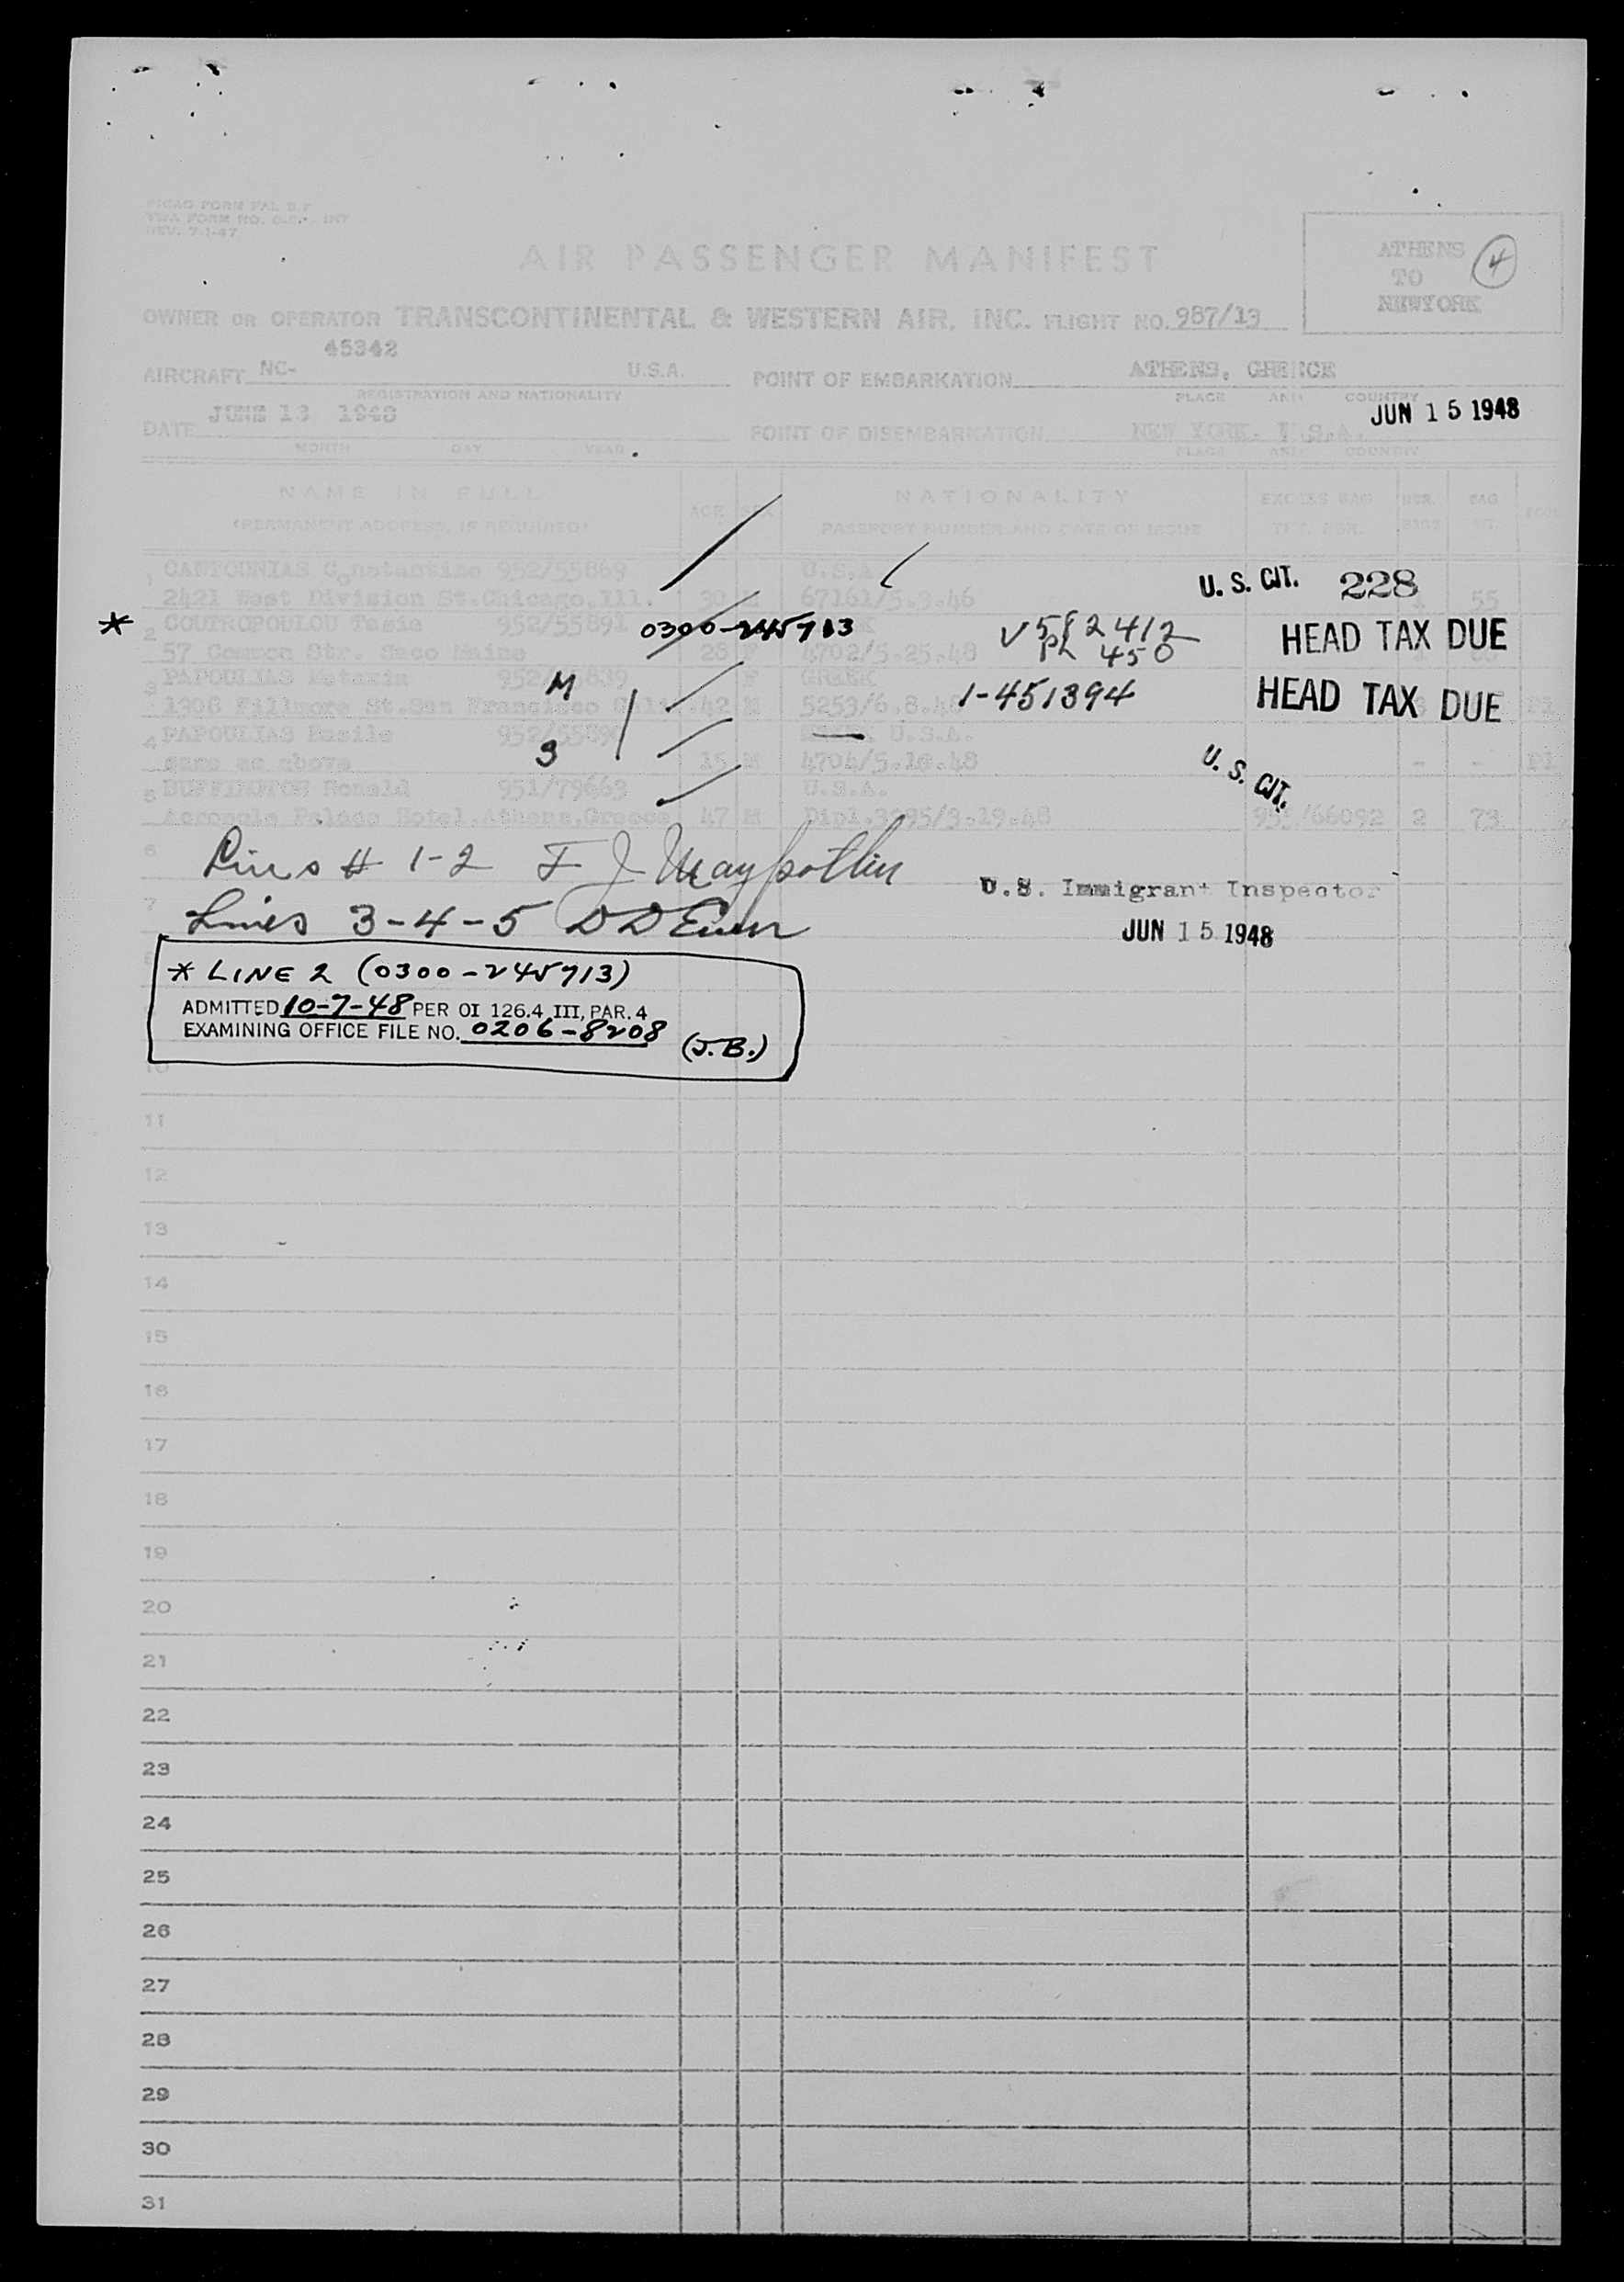 REV. 7-1-47
AIR PASSENGER MANIFEST
ATHENS
TO
NEWYORK
4
OWNER OR OPERATOR TRANSCONTINENTAL & WESTERN AIR, INC. FLIGHT NO. 987/13
45342
AIRCRAFT NC- U.S.A. POINT OF EMBARKATION ATHENS, GREECE
REGISTRATION AND NATIONALITY PLACE AND COUNTRY
JUN 15 1948
DATE JUNE 13 1948 POINT OF DISEMBARKATION NEW YORK. U.S.A.
MONTH DAY YEAR PLACE AND COUNTRY
NAME IN FULL AGE SEX NATIONALITY
(PERMANENT ADDRESS, IF REQUIRED) PASSPORT NUMBER AND DATE OF ISSUE
1 CANTOUNIAS Constantine 952/55869 U.S.A. U.S. CIT. 228
2421 West Division St.Chicago.Ill. 30 67161/5.9.46 55
* 2 COUTROPOULOU Tasia 952/55891 0300-245713 HEAD TAX DUE
57 Common Str. Saco Maine 28 F 4702/5.25.48 450
3 PAPOULIAS 952/55839 M F GREEK 1-451394 HEAD TAX DUE
1308 Fillmore St.San Francisco 42 M 5253/6.8.48
4 PAPOULIAS Basile S U.S.A. U.S. CIT.
same as above 15 M 4704/5.10.48 - -
5 BUFFINGTON Ronald 951/79663 U.S.A.
Acropole Palace Hotel.Athens,Greece 47 M Dipl.3095/3.19.48 2 73
6 Lines # 1-2
U.S. Immigrant Inspector
7 Lines 3-4-5
JUN 15 1948
* LINE 2 (0300-245713)
ADMITTED 10-7-48 PER OI 126.4 III, PAR. 4
EXAMINING OFFICE FILE NO. 0206-8208 (J.B.)
10
11
12
13
14
15
16
17
18
19
20
21
22
23
24
25
26
27
28
29
30
31